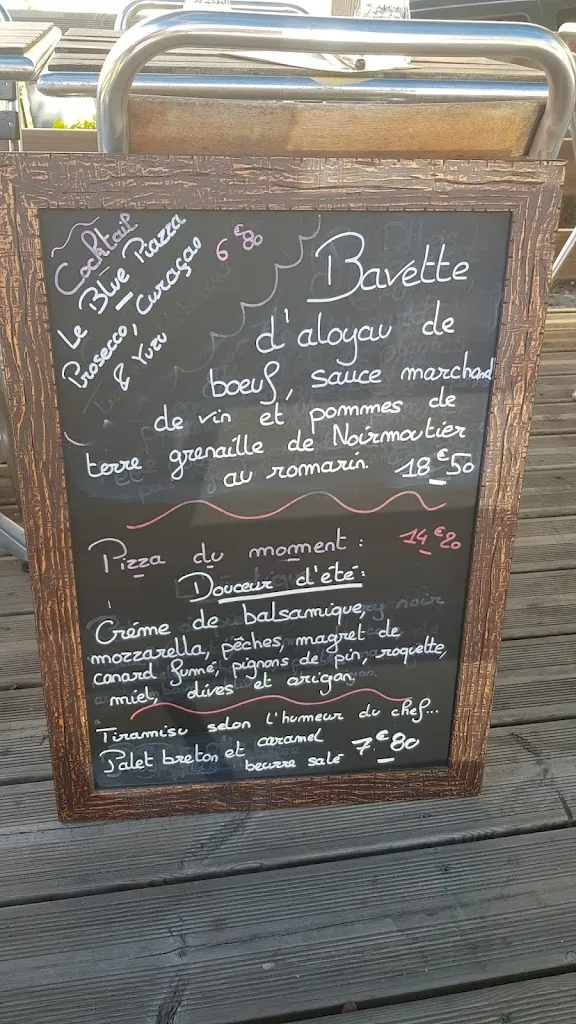 Cocktail
Le Blue Piazza
Prosecco, Curaçao
& Yuzu
6€80
Bavette
d'aloyau de
boeuf, sauce marchand
de vin et pommes de
terre grenaille de Noirmoutier
au romarin. 18€50
Pizza du moment : 14€20
Douceur d'été :
Crème de balsamique,
mozzarella, pêches, magret de
canard fumé, pignons de pin, roquette,
miel, olives et origan,
Tiramisu selon l'humeur du chef...
Palet breton et caramel
beurre salé 7€80